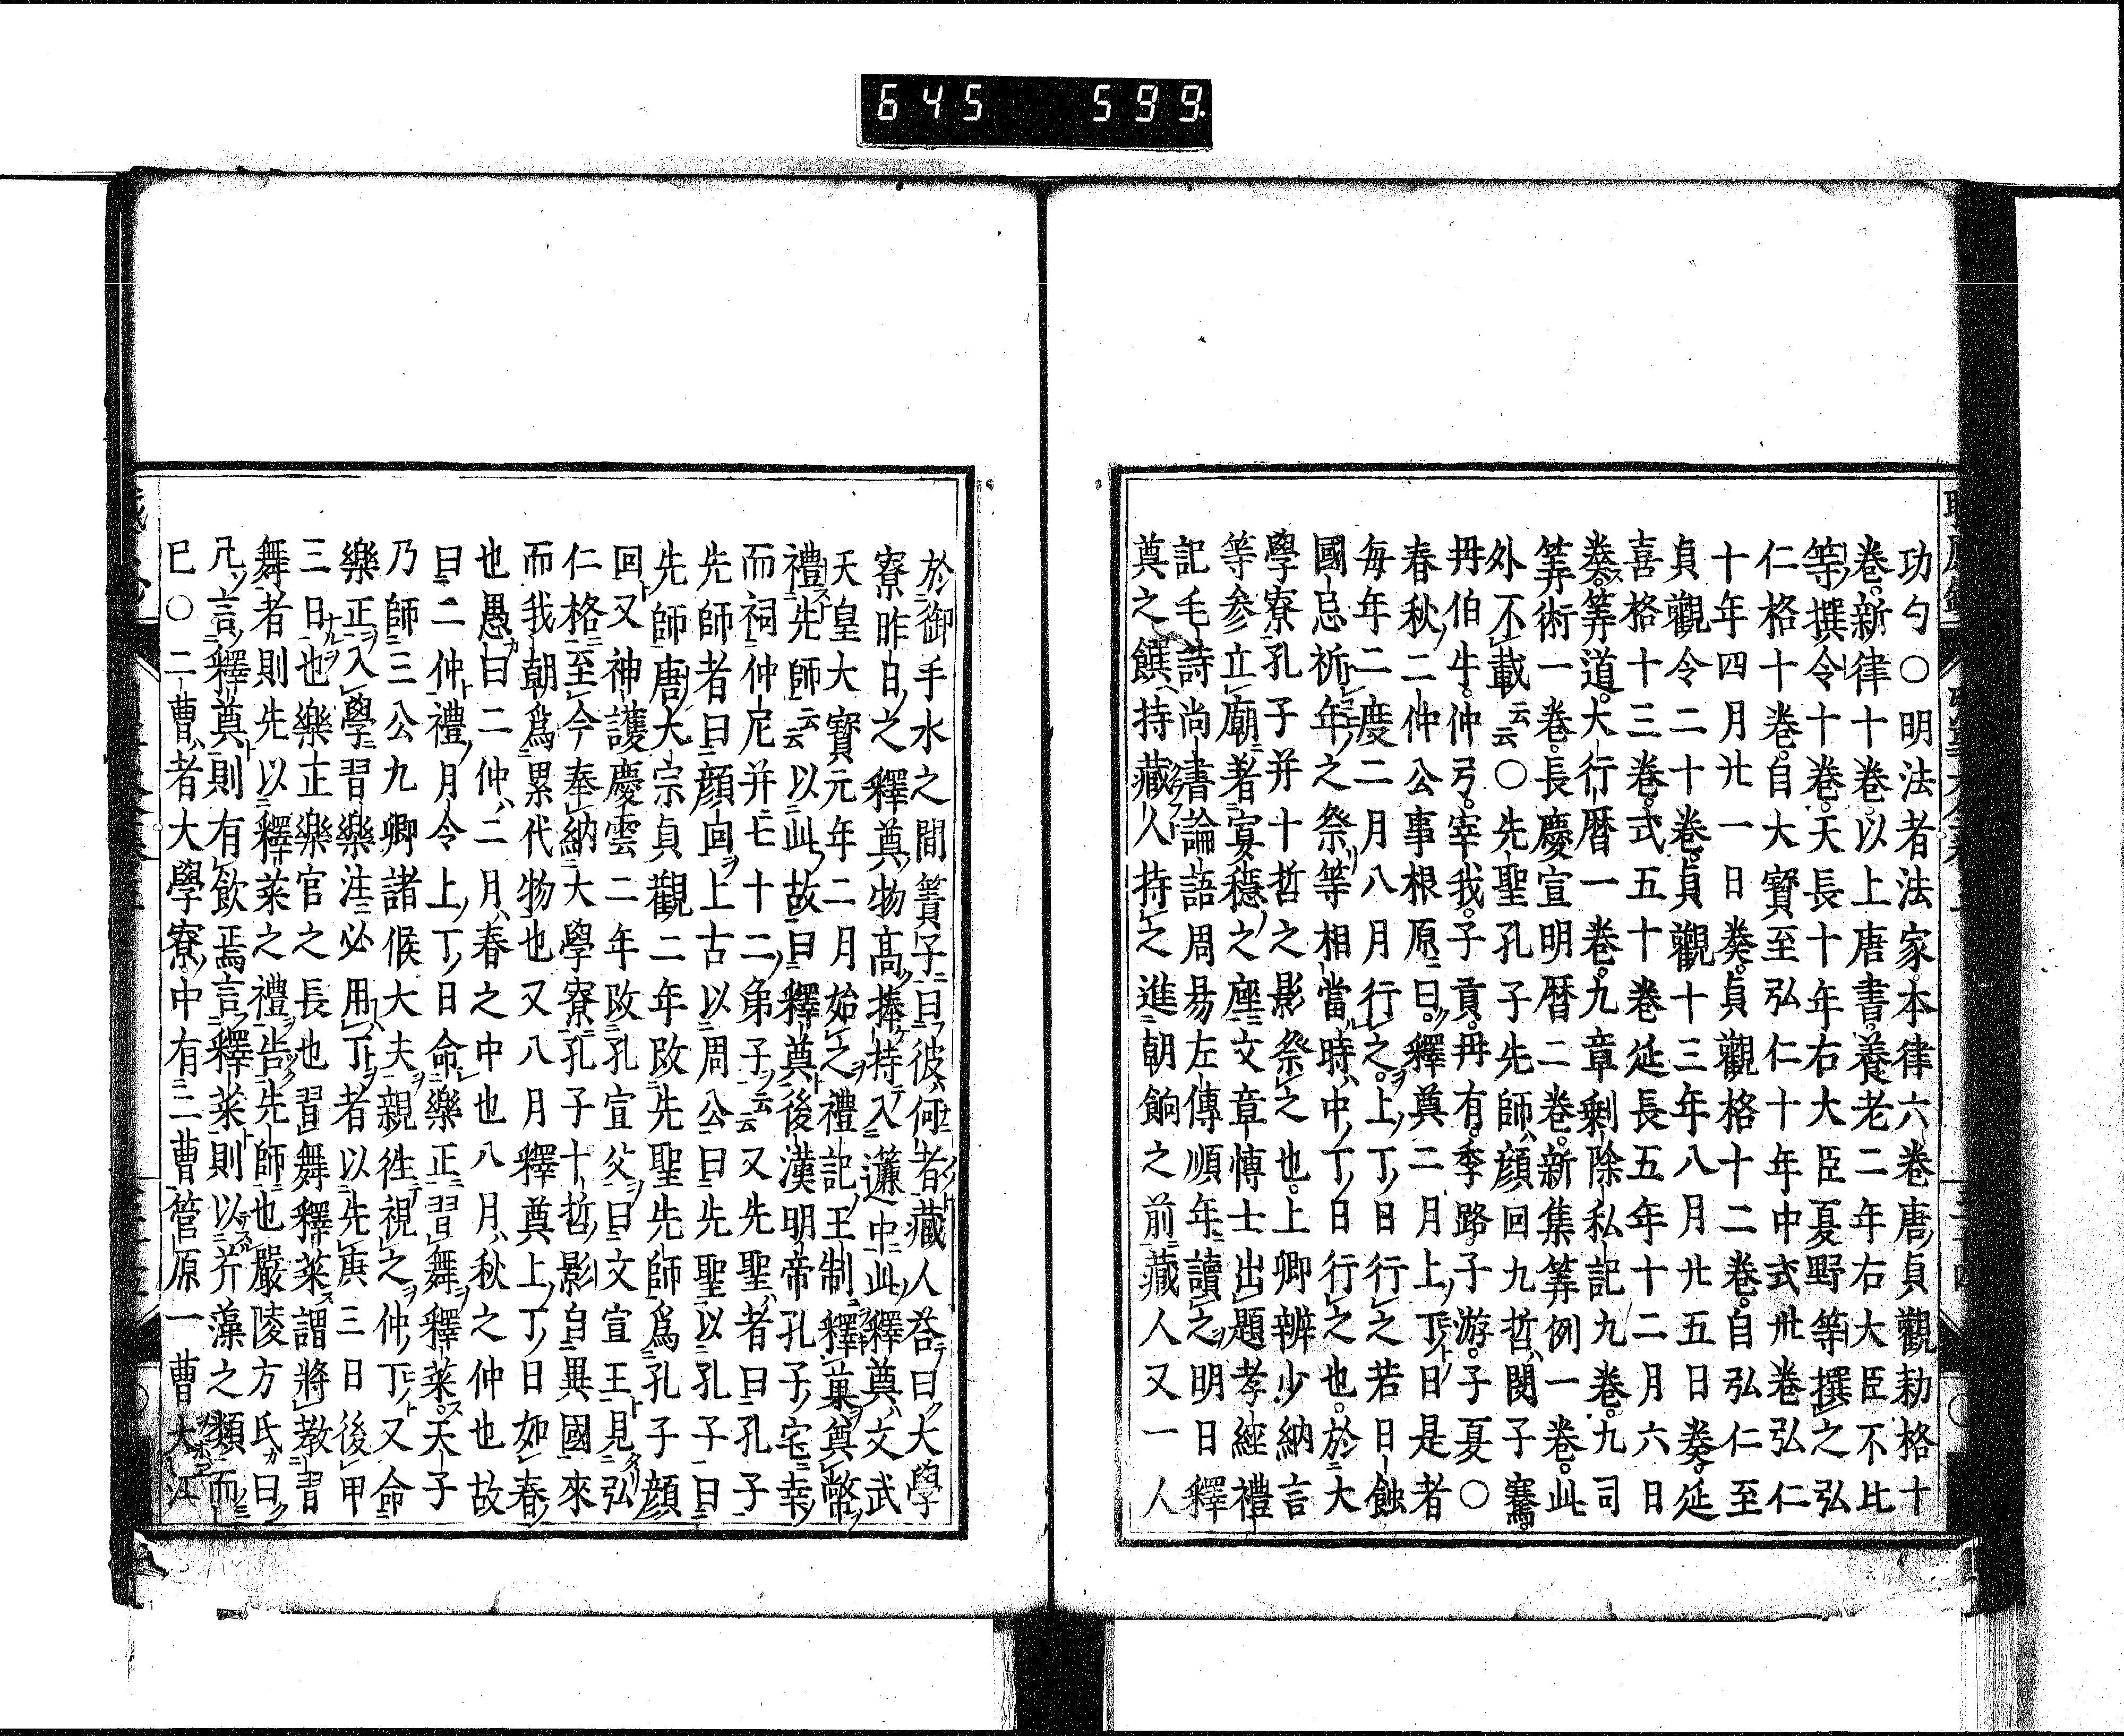 645 599.
功勺○明法者法家本律六巻唐貞觀勅格十
巻新律十巻以上唐書養老二年右大臣不比
等撰令十巻天長十年右大臣夏野等撰之弘
仁格十巻自大寳至弘仁十年中式卅巻弘仁
十年四月廿一日奏貞觀格十二巻自弘仁至
貞觀令二十巻貞觀十三年八月廿五日奏延
喜格十三巻式五十巻延長五年十二月六日
奏筭道大行暦一巻九章剰除私記九巻九司
筭術一巻長慶宣明暦二巻新集筭例一巻此
外不載云云○先聖孔子先師顔回九哲閔子騫
冉伯牛仲弓宰我子貢冉有季路子游子夏○
春秋二仲公事根原曰釋奠二月上丁日是者
毎年二度二月八月行之上丁日行之若日蝕
國忌祈年之祭等相當時中丁日行之也於大
學寮孔子并十哲之影祭之也上卿辨少納言
等参立廟著宴穩之座文章博士出題孝經禮
記毛詩尚書論語周易左傳順年讀之明日釋
奠之饌持藏人持之進朝餉之前藏人又一人
於御手水之間簀子曰彼何者藏人荅曰大學
寮昨日之釋奠物髙捧持入簾中此釋奠文武
天皇大寳元年二月始之禮記王制釋菓奠幣
禮先師云云以此故曰釋奠後漢明帝孔子宅幸
而祠仲尼并七十二弟子云云又先聖者曰孔子
先師者曰顔回上古以周公曰先聖以孔子曰
先師唐大宗貞觀二年改先聖先師爲孔子顔
回又神護慶雲二年改孔宣父曰文宣王見弘
仁格至今奉納大學寮孔子十哲影自異國來
而我朝爲累代物也又八月釋奠上丁日如春
也愚曰二仲二月春之中也八月秋之仲也故
曰二仲禮月令上丁日命樂正習舞釋菜天子
乃師三公九卿諸候大夫親徃視之仲丁又命
樂正入學習樂注必用丁者以先庚三日後甲
三日也樂正樂官之長也習舞釋菜謂將教習
舞者則先以釋菜之禮告先師也嚴陵方氏曰
凡言釋奠則有飲焉言釋菜則以芥藻之類而
已○二曹者大學寮中有二曹菅原一曹大江